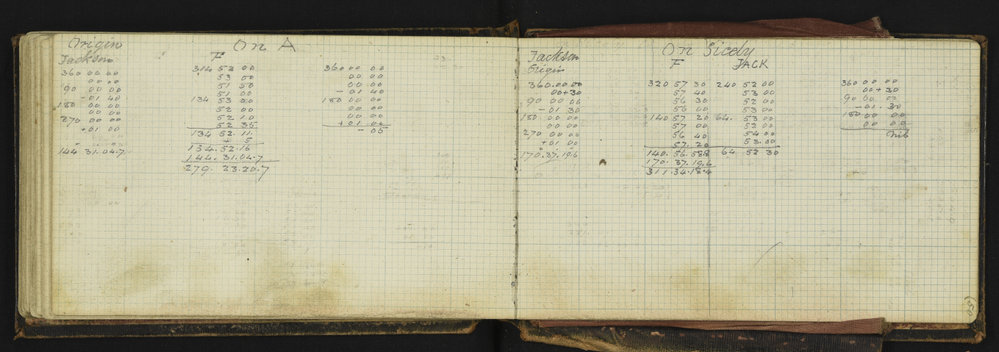 Origin On A
Jackson F
360 00 00 314 52 00 360 00 00
00 00 53 00 00 00
90 00 00 51 50 00 00
- 01 40 51 00 - 01 40
180 00 00 134 53 00 180 00 00
00 00 52 00 00 00
270 00 00 52 10 00 00
+ 01 00 52 35 + 01 00
134 52 11 - 05
+ 5
134. 52. 16
144 31. 04. 7 144. 31. 04. 7
279. 23. 20. 7
Jackson On Sicely
Origin F JACK
360. 00. 00 320 57 30 240 52 00 360 00 00
00 + 30 57 40 53 00 00 + 30
90 00 00 56 30 52 00 90 00
- 01 30 57 00 53 00 - 01. 30
180 00 00 140 57 20 64. 53 00 180 00 00
00 00 57 00 52 00 00 00
270 00 00 56 40 54 00 Nil
+ 01 00 57. 20 53. 00
170. 37. 19.6 140. 56. 58.8 64. 52 30
170. 37. 19.6
311. 34. 18.4